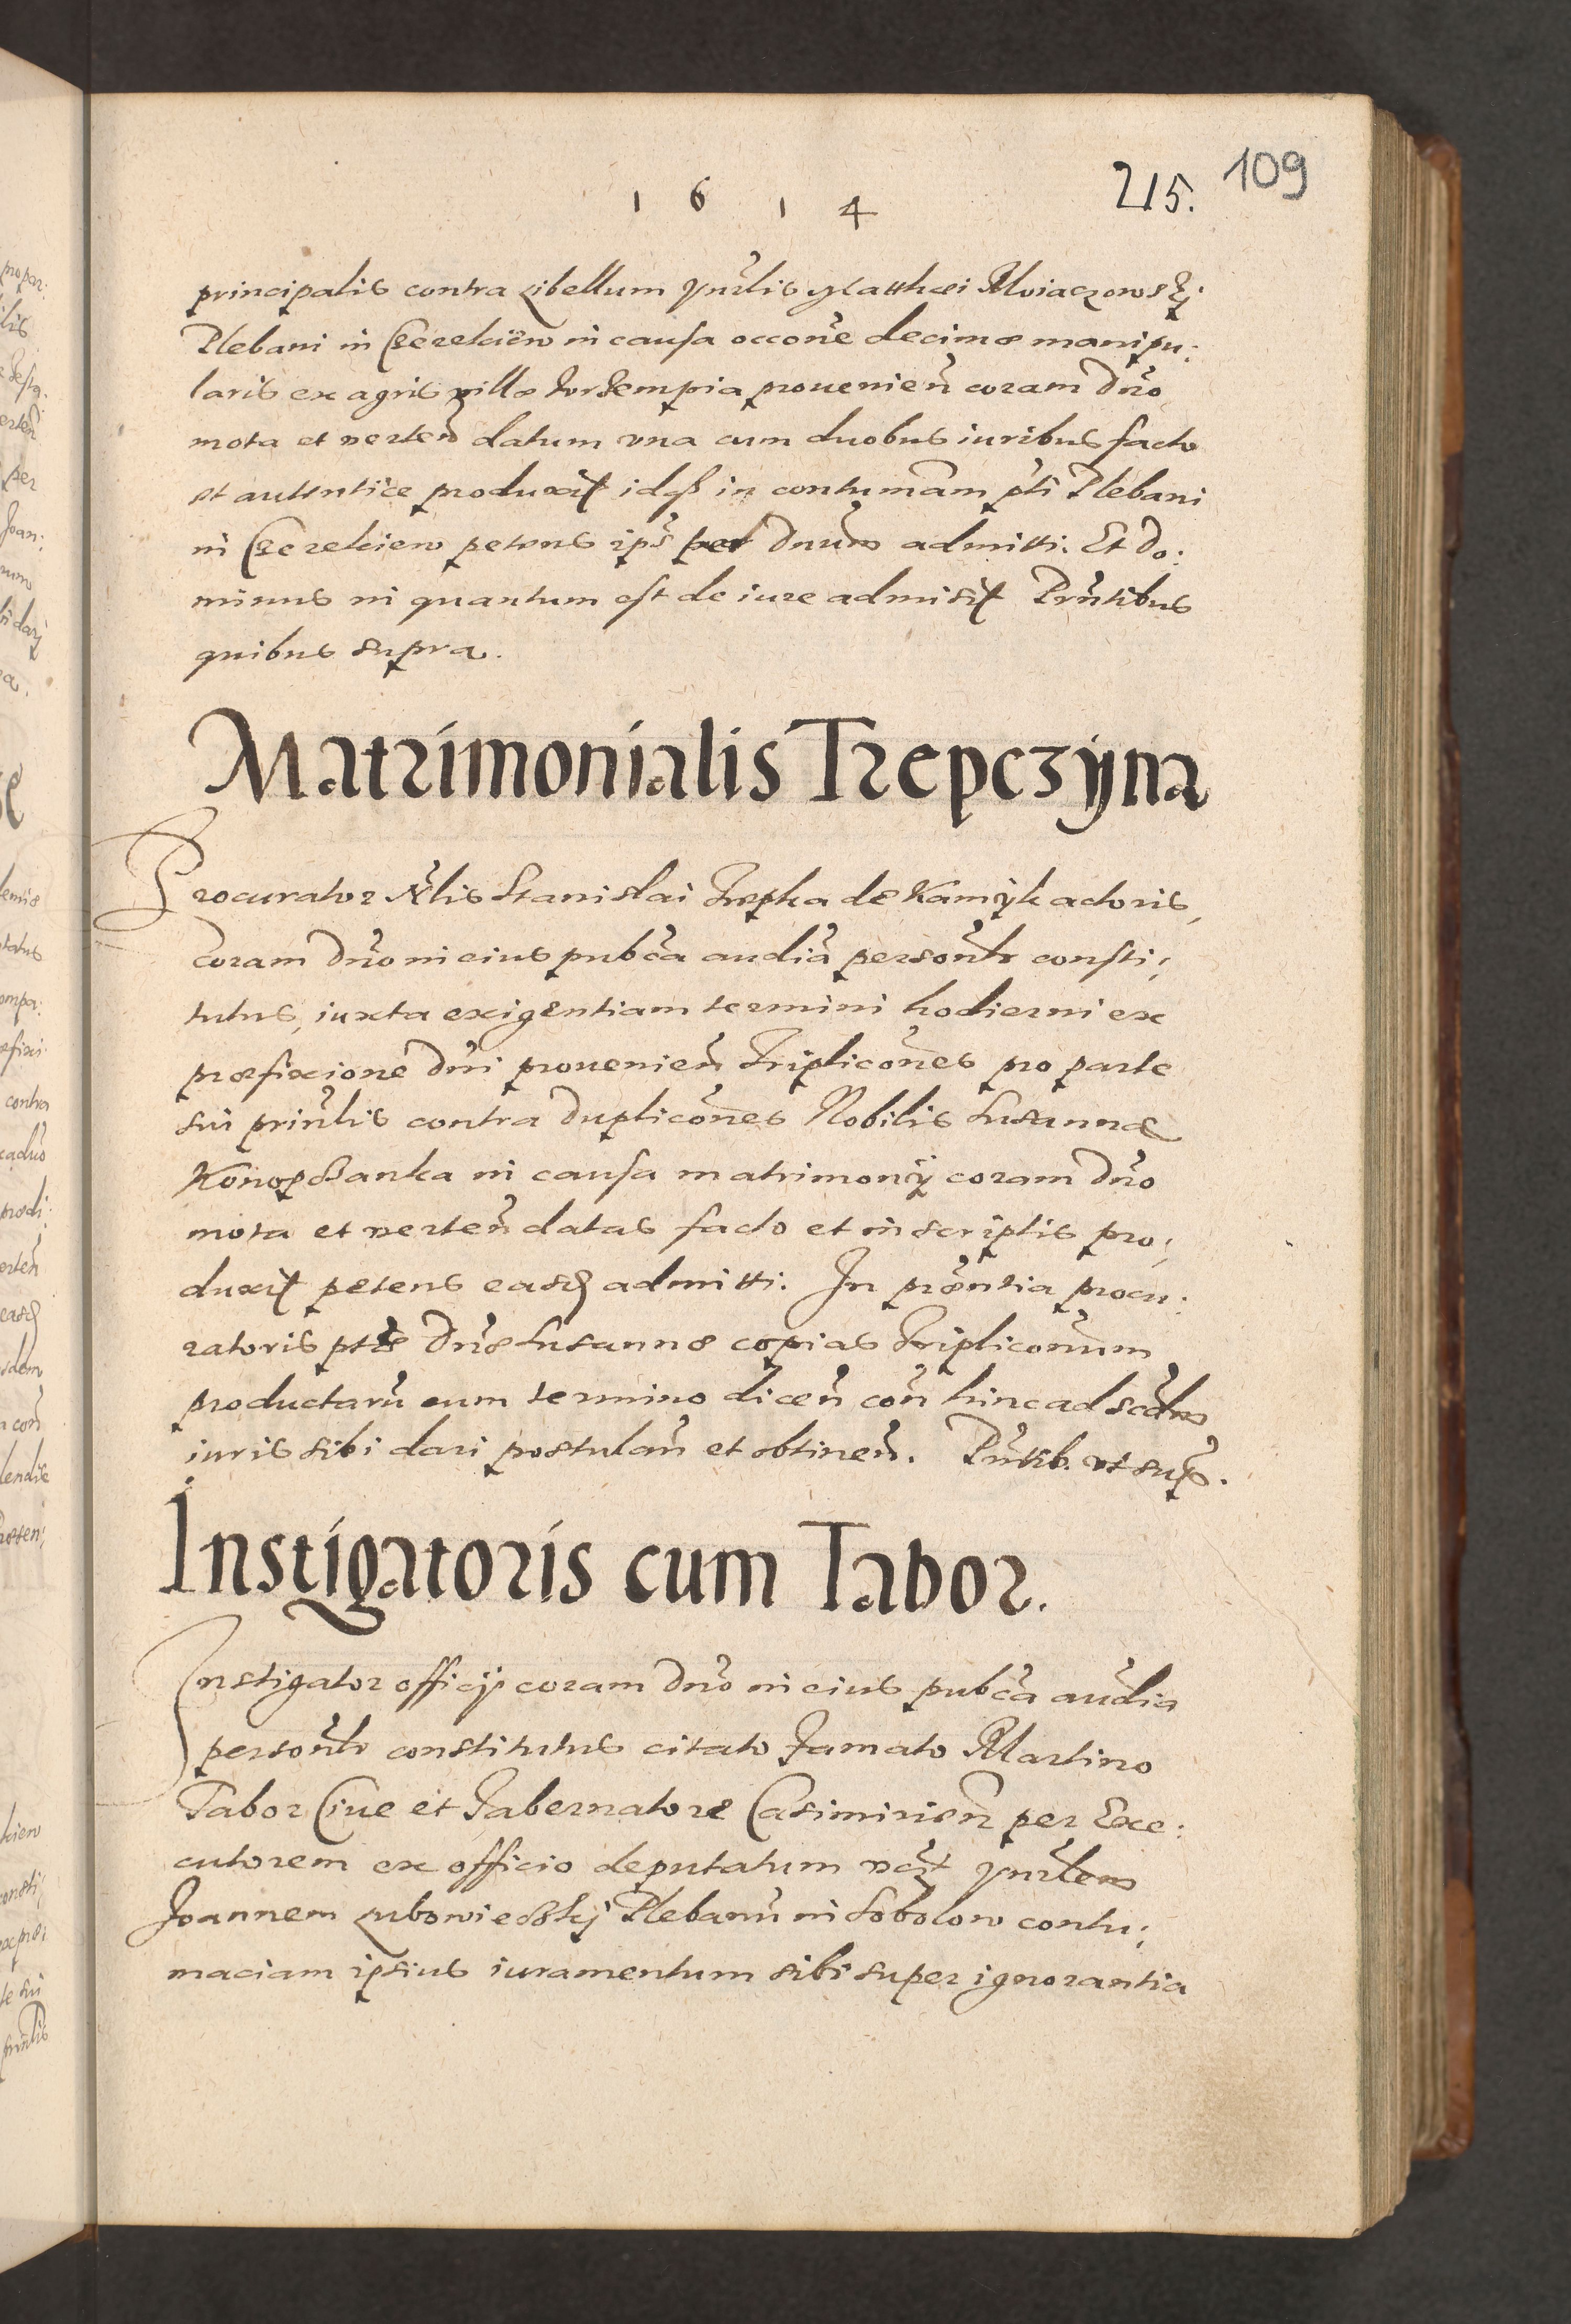 1 6 1 4
215. 109
principalis contra Libellum Vnrlis Matthæi
Plebani in in causa occone decimæ manipu:
laris ex agris villæ prouenien coram Dno
mota et verten datum vna cum duobus iuribus facto
et autentice produxit idq in contumam pti Plebani
in petens ips per Dnum admitti. Et Do:
minus in quantum est de iure admisit Prntibus
quibus supra.
Matrimonialis Trepczyna
Procurator Nlis Stanislai Trepka de Kamyk actoris,
coram Dno in eius pubca audia personlr consti:
tutus, iuxta exigentiam termini hodierni ex
præfixione Dni prouenien Triplicones pro parte
sui prinlis contra duplicones Nobilis Susannæ
in causa matrimonij coram Dno
mota et verten datas facto et in scriptis pro:
duxit petens easd admitti. In præntia procu:
ratoris ptæ Dnæ Susannæ copias Tripliconum
productaru cum termino dicen con hinc ad scdm
iuris sibi dari postulan et obtinen. Pntib. vt sup.
Instigatoris cum Tabor.
Instigator officij coram Dno in eius pubca audia
personlr constitutus citato Famato Martino
Tabor Ciue et Tabernatore Casimirien per Exe:
cutorem ex officio deputatum Vnrlem
Joannem Plebanu in Sobolow contu:
maciam ipsius iuramentum sibi super ignorantia